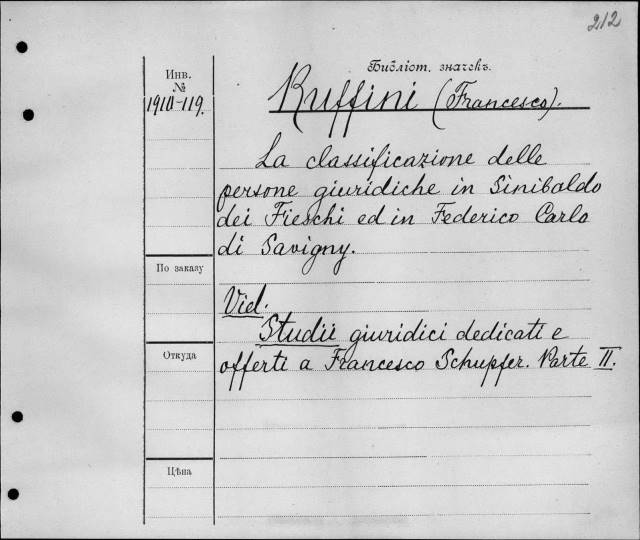 212
Инв.
№
1910-119.
Библіот. значекъ.
Ruffini (Francesco).
La classificazione delle
persone giuridiche in Sinibaldo
dei Fieschi ed in Federico Carlo
di Savigny.
По заказу
Vid.
Studii giuridici dedicati e
offerti a Francesco Schupfer. Parte II.
Откуда
Цѣна